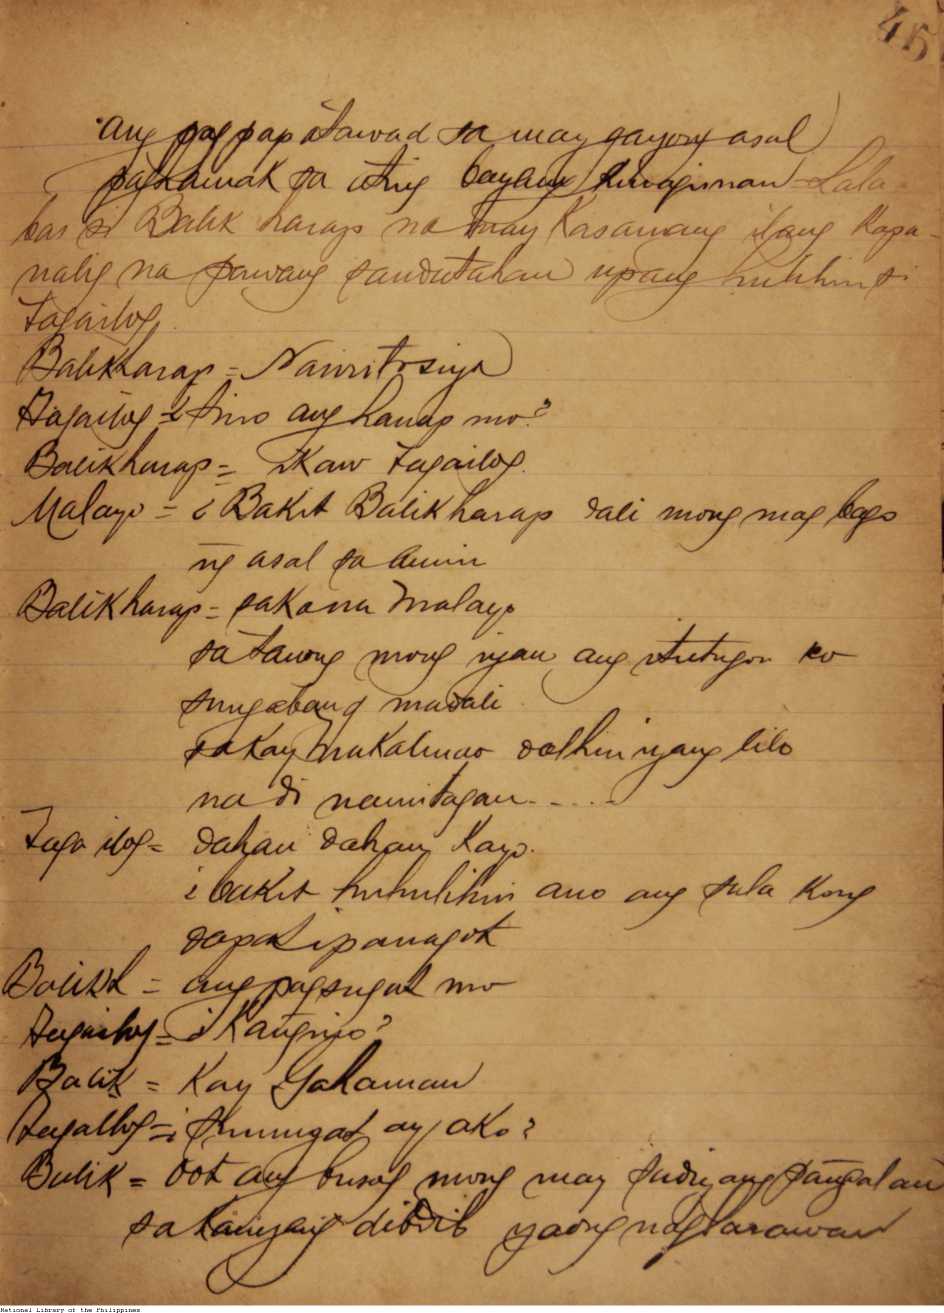 45
ang pag papatawad sa may gayong asal
sa ating bayang Lala
bas si Balik harap na may Kasamang ilang Kapa-
nalig na pawang sandatahan upang hulihin si
Tagailog
Balikharap = Narito siya
Tagailog = ¿Sino ang hanap mo?
Balikharap = Ikaw Tagailog.
Malayo = ¿Bakit Balikharap dali mong mag bago
ng asal sa amin
Balikharap = saka na Malayo
sa tanong mong iyan ang itutugon ko
madali
dalhin iyang lilo
na di namitagan.....
Taga ilog = dahan dahan Kayo.
¿bakit huhulihin ano ang sala Kong
dapat ipanagot
Balikh = ang pagsugat mo
Tagailog = ¿Kangino?
Balik = Kay Gahaman
Tagailog = ¿Sumugat ay ako?
Balik = Oot ang busog mong may sadiyang
sa kaniyang dibdib yaong naglarawan
National Library of the Philippines